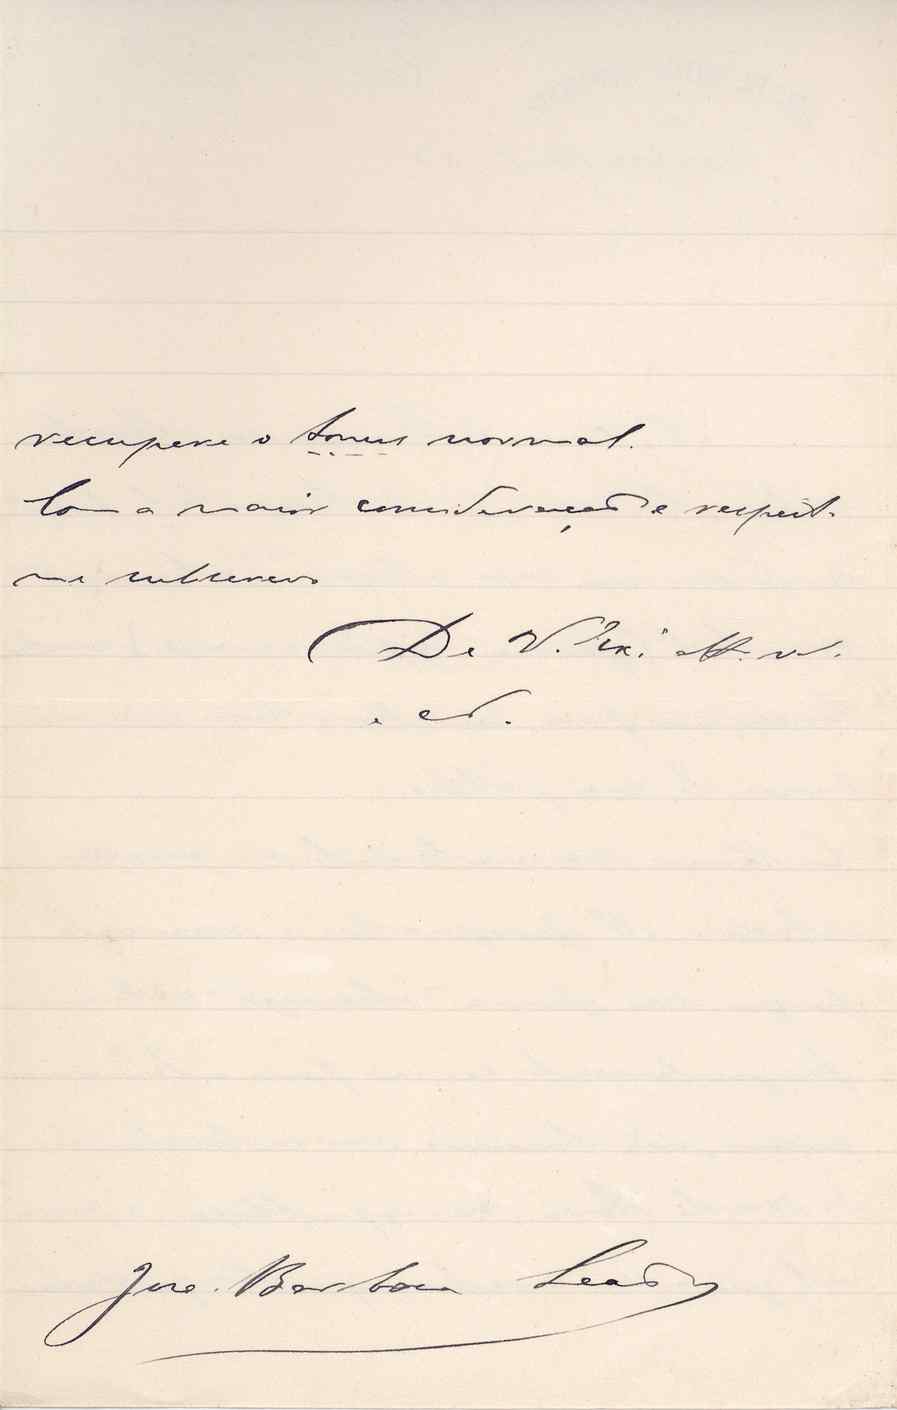 recupere o tonus normal.
Com a maior consideração e respeito
me subscrevo
De V. Exª. attº. vor.
e cr.
José Barbosa Leão